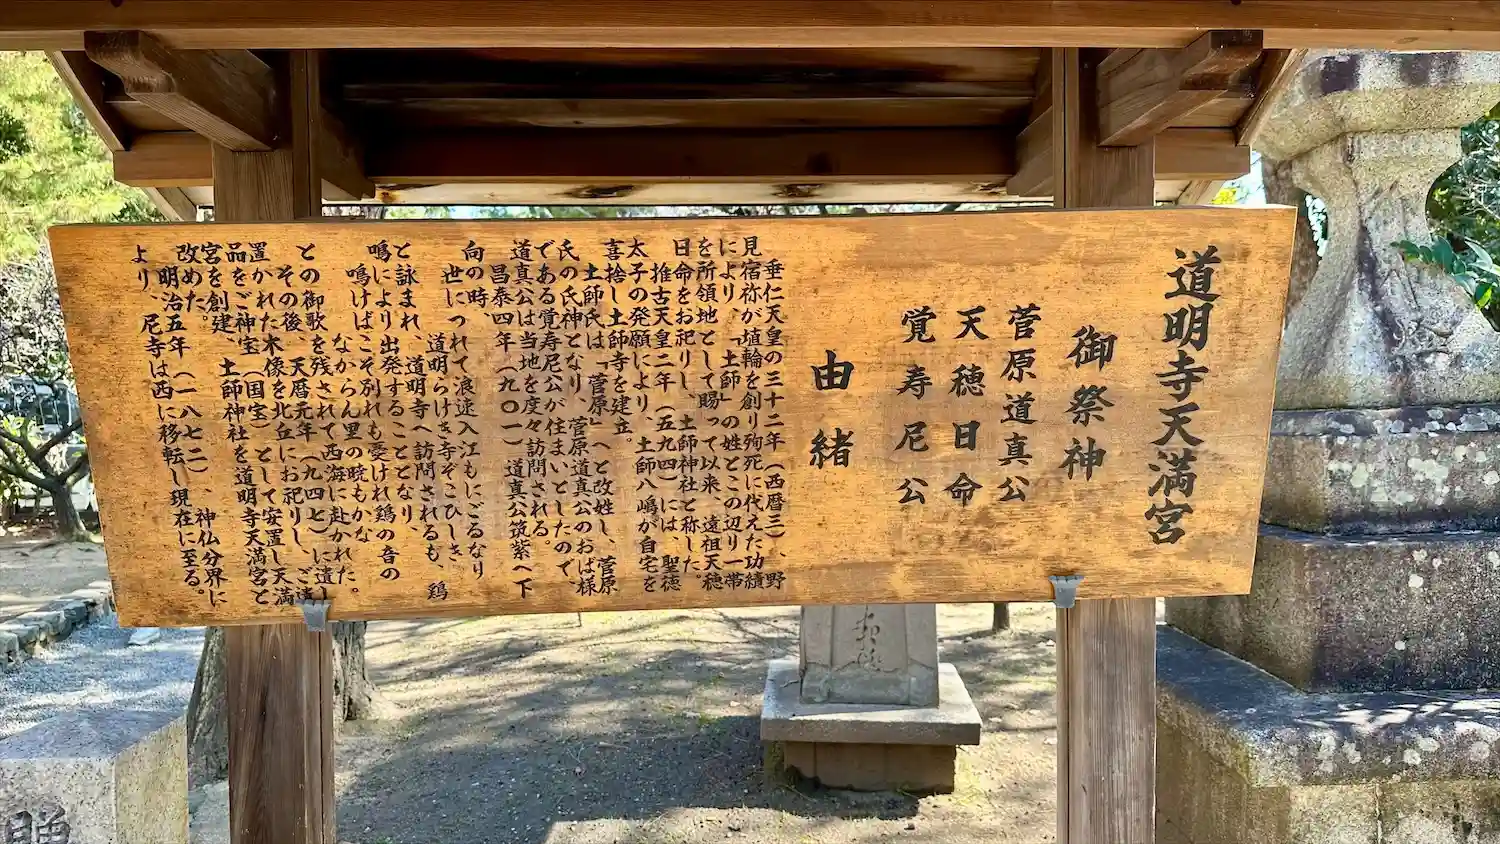 道明寺天満宮
御祭神
菅原道真公
天穂日命
覚寿尼公
由緒
垂仁天皇の三十二年（西暦三）、野
見宿祢が埴輪を創り殉死に代えた功績
により、「土師」の姓とこの辺り一帯
を所領地として賜って以来、遠祖天穂
日命をお祀りし、土師神社と称した。
推古天皇二年（五九四）には、聖徳
太子の発願により、土師八嶋が自宅を
喜捨し土師寺を建立。
土師氏は、「菅原」へと改姓し、菅原
氏の氏神となり、菅原道真公のおば様
である覚寿尼公が住まいとしたので、
道真公は当地を度々訪問される。
昌泰四年（九〇一）道真公筑紫へ下
向の時、
世につれて浪速入江もにごるなり
道明らけき寺ぞこひしき
と詠まれ、道明寺へ訪問されるも、鶏
鳴により出発することとなり、
鳴けばこそ別れも憂けれ鶏の音の
なからん里の暁もがな
との御歌を残されて西海に赴かれた。
その後、天暦元年（九四七）に遺し
置かれた木像を北丘にお祀りし、ご遺
品をご神宝（国宝）として安置し天満
宮を創建、土師神社を道明寺天満宮と
改めた。
明治五年（一八七二）、神仏分界に
より、尼寺は西に移転し現在に至る。